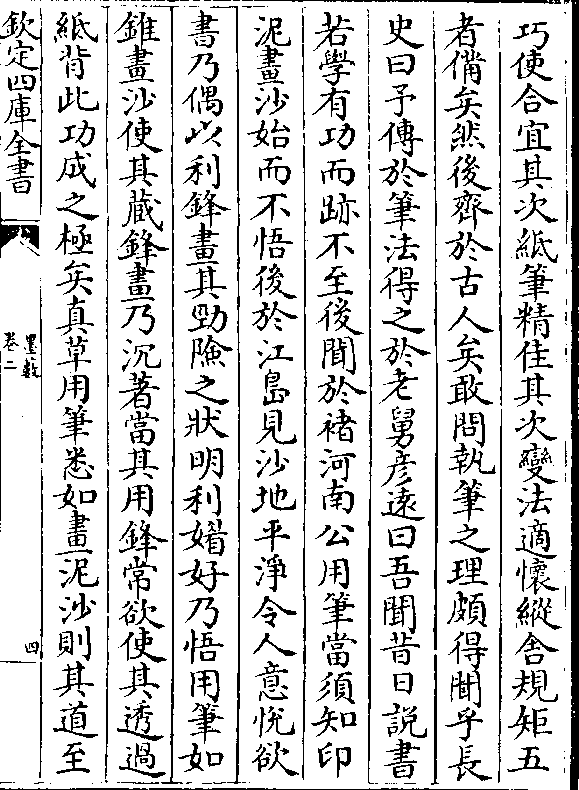 巧使合宜其次紙筆精佳其次變法適懷縱舍規矩五
者備矣然後齊於古人矣敢問執筆之理頗得聞乎長
史曰予傳於筆法得之於老舅彦遠曰吾聞昔日説書
若學有功而跡不至後聞於褚河南公用筆當須知印
泥畫沙始而不悟後於江島見沙地平淨令人意恱欲
書乃偶以利鋒畫其勁險之狀明利媚好乃悟用筆如
錐畫沙使其蔵鋒畫乃沉著當其用鋒常欲使其透過
紙背此功成之極矣真草用筆悉如畫泥沙則其道至
欽定四庫全書
墨藪
卷二
四